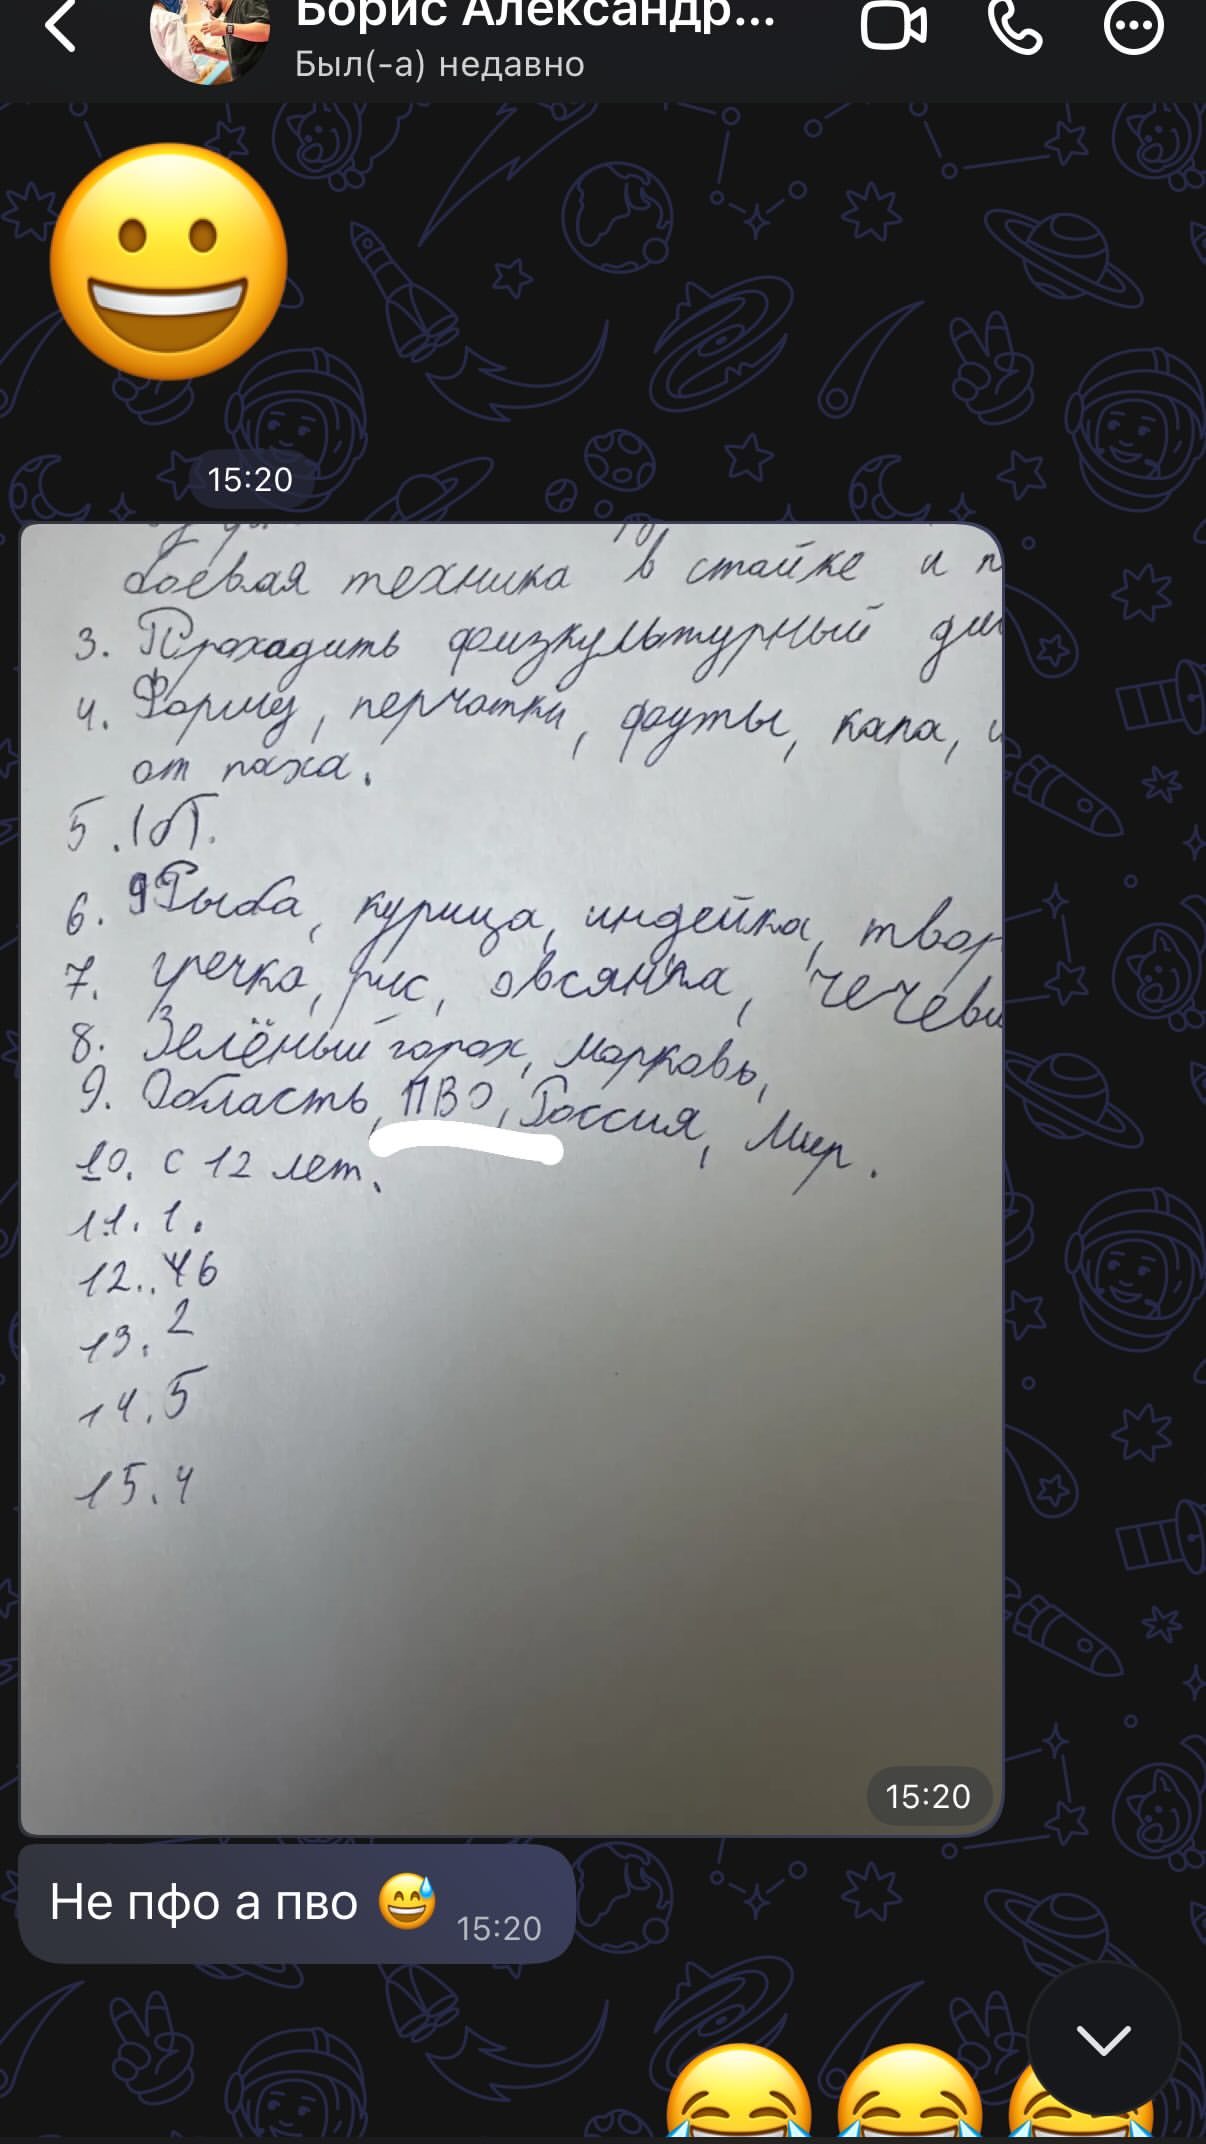 Борис Александр...
Был(-а) недавно
15:20
боевая техника в стойке и п
3. Проходить физкультурный дис
4. Форму, перчатки, футы, капа,
от паха.
5. 1б.
6. Рыба, курица, индейка, твор
7. гречка, рис, овсянка, чечеви
8. Зелёный горох, морковь,
9. Область, ПВО, Россия, Мир.
10. с 12 лет.
11. 1.
12. 46
13. 2
14. 5
15. 4
15:20
Не пфо а пво 😅 15:20